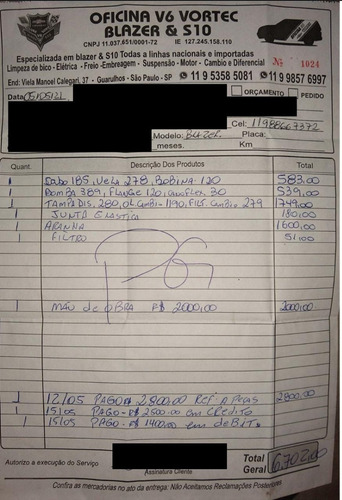 OFICINA V6 VORTEC
BLAZER & S10
CNPJ 11.037.651/0001-72 IE 127.245.158.110
Especializada em blazer & S10 Todas a linhas nacionais e importadas
Limpeza de bico - Elétrica - Freio -Embreagem - Suspensão - Motor - Cambio e Diferencial Nº 1024
End: Viela Manoel Calegari, 37 - Guarulhos - São Paulo - SP 11 9 5358 5081 11 9 9857 6997
Data 05/05/21 ORÇAMENTO PEDIDO
Cel: 11988667372
Modelo: BLAZER Placa:
_meses. Km
Quant. Descrição Dos Produtos Total
1 Cabo 185, Vela 278, BOBINA 120 583,00
1 BOMBA 389, FLANGE 120, 30 539,00
1 TAMPA DIS. 280, OL Cambio 1190, FILT. Cambio 279 1749,00
1 JUNTA ELASTICA 180,00
1 ARANHA 1600,00
1 FILTRO 51,00
1 MÃO de OBRA R$ 2000,00 2000,00
1 12/05 PAGO R$ 2800,00 Ref: A PEÇAS 2800,00
1 15/05 PAGO - R$ 2500,00 em CREDITO
1 15/05 PAGO - R$ 1400,00 em deBiTo
Autorizo a execução do Serviço Total
Geral 6,702,00
Assinatura Cliente
Confira as mercadorias no ato da entrega: Não Aceitamos Reclamações Posteriores